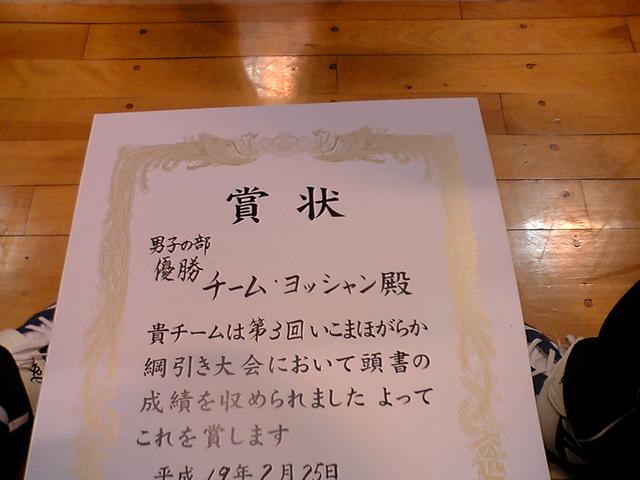 賞状
男子の部
優勝
チーム・ヨッシャン殿
貴チームは第3回いこまほがらか
綱引き大会において頭書の
成績を収められました よって
これを賞します
平成19年2月25日